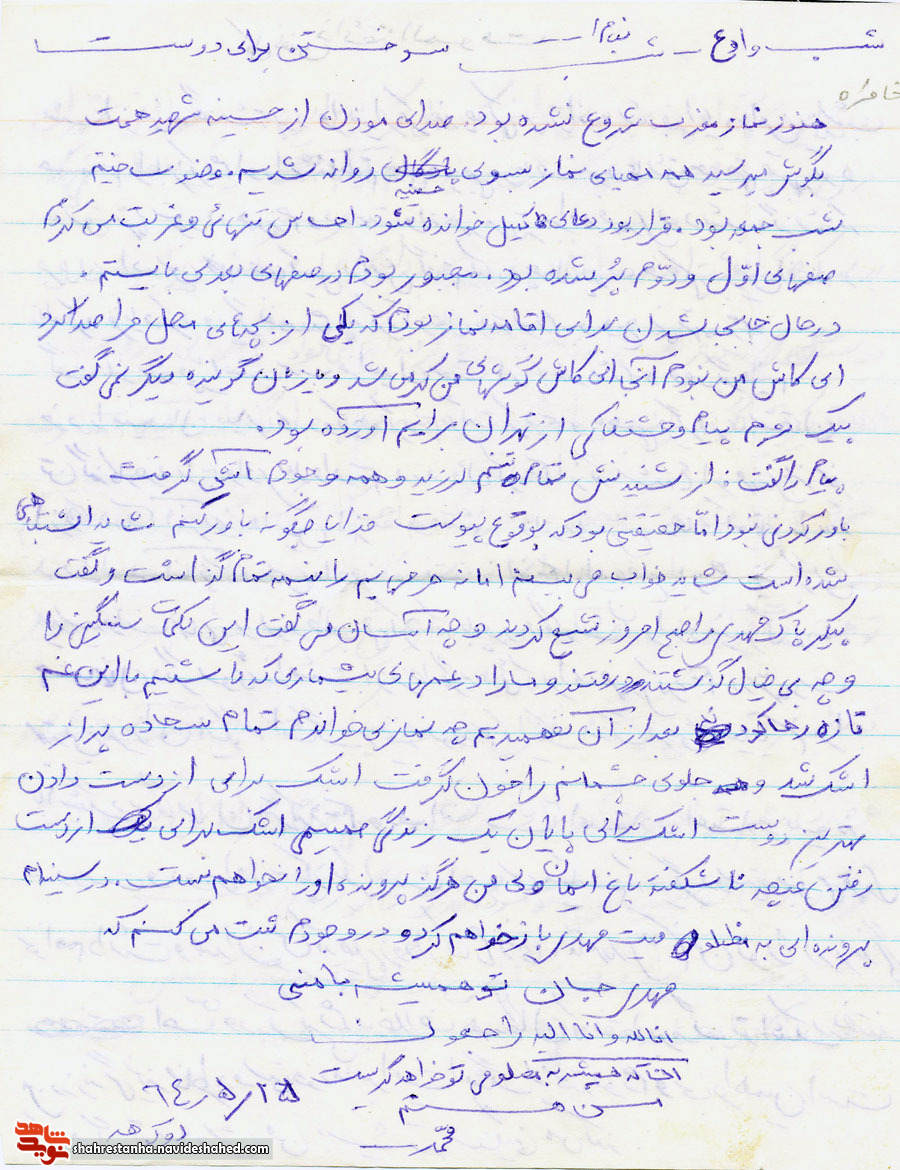 بنام او
شب وداع - شب سوختن برای دوست
خاطره
هنوز نماز مغرب شروع نشده بود. صدای موذن از حسینه شهید همت
بگوش میرسید همه مهیای نماز بسوی حسینیه روانه شدیم. وضو ساختیم
شب جمعه بود. قرار بود دعای کمیل خوانده شود. احساس تنهائی و غربت می‌کردم
صفهای اوّل و دوّم پُر شده بود. مجبور بودم در صفهای بعدی بایستم.
در حال شدن برای اقامه نماز بودم که یکی از بچه‌های محل مرا صدا کرد
ای کاش من نبودم آنجا ای کاش گوشهای من کر می شد و یا زبان گوینده دیگر نمی گفت
پیک پیام وحشتناکی از تهران برایم آورده بود.
پیام را گفت: از شنیدنش تمام تنم لرزید و همه وجودم آتش گرفت
باور کردنی نبود امّا حقیقتی بود که بوقوع پیوست خدایا چگونه باور کنم شاید اشتباهی
شده است شاید خواب می بینم اما نه حرفهایم را نیمه تمام گذاشت و گفت
پیکر پاک مهدی را صبح امروز تشیع کردند و چه آسان می گفت این کلمات سنگین را
و چه بی خیال گذشتند و رفتند و ما را در غمهای بیشماری که داشتیم با این غم
تازه رها کردند بعد از آن نفهمیدیم چه نمازی خواندم تمام سجاده پر از
اشک شد و جلوی چشمانم را خون گرفت اشک برای از دست دادن
بهترین دوست اشک برای پایان یک زندگی صمیمی اشک برای از دست
رفتن غنچه ناشکفته باغ ایمان ولی من هرگز پرونده او را نخواهم بست. در سینه‌ام
پرونده‌ای به مظلومیت مهدی باز خواهم کرد و در وجودم ثبت می کنم که
مهدی جان تو همیشه با منی
انا لله و انا الیه راجعون
آنکه همیشه به مظلومی تو خواهد گریست
من هستم
محمّد
٦٤/٥/٢٥
دوکوهه
شاهد
نوید
shahrestanha.navideshahed.com